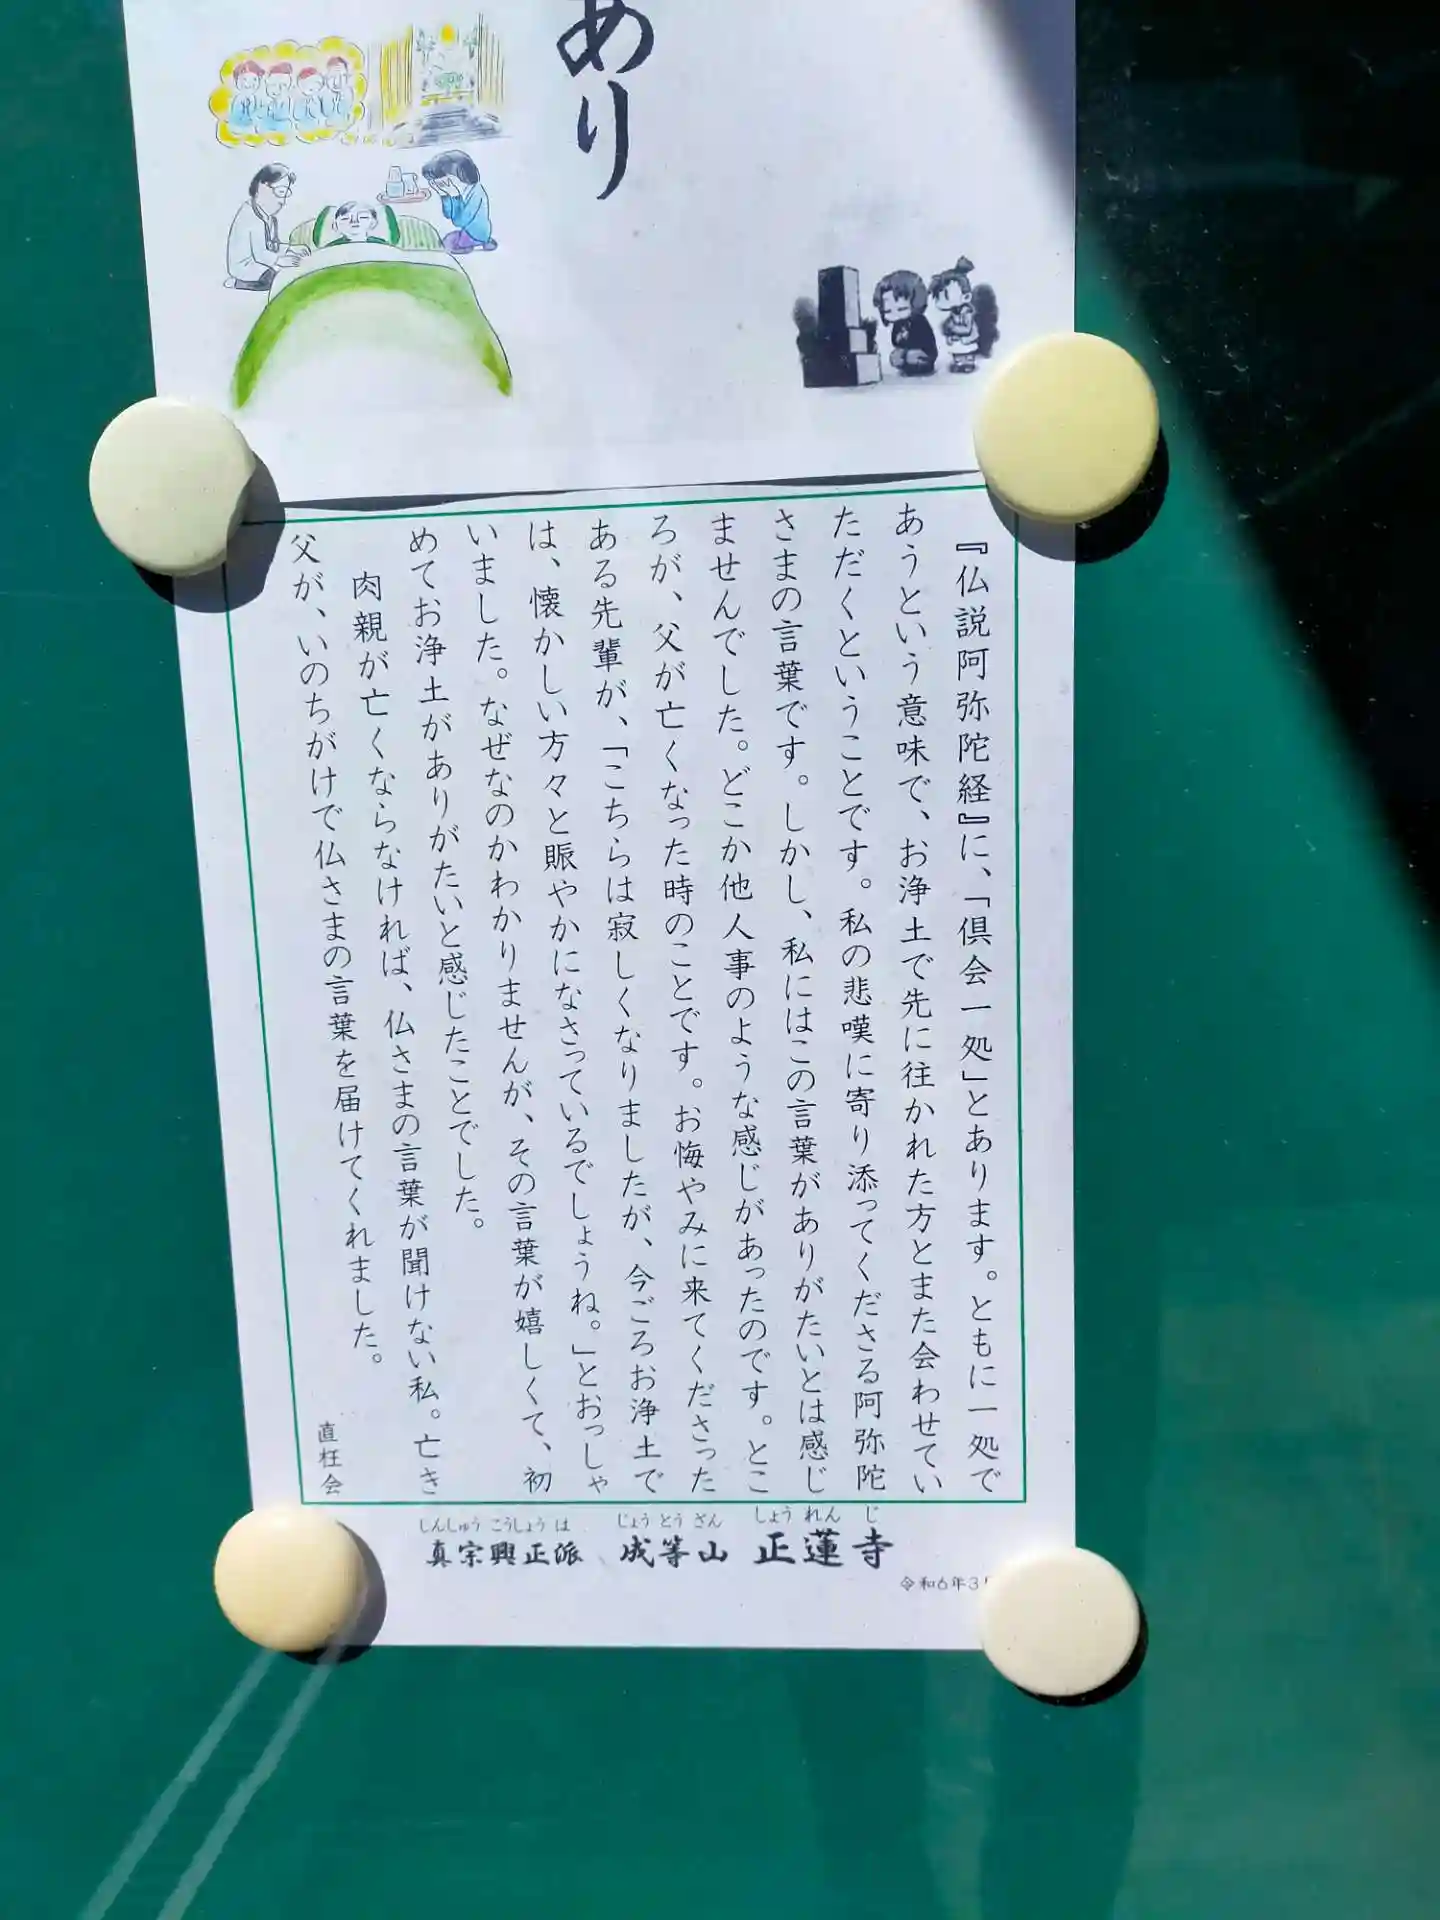 あり
『仏説阿弥陀経』に、「倶会一処」とあります。ともに一処で
あうという意味で、お浄土で先に往かれた方とまた会わせてい
ただくということです。私の悲嘆に寄り添ってくださる阿弥陀
さまの言葉です。しかし、私にはこの言葉がありがたいとは感じ
ませんでした。どこか他人事のような感じがあったのです。とこ
ろが、父が亡くなった時のことです。お悔やみに来てくださった
ある先輩が、「こちらは寂しくなりましたが、今ごろお浄土で
は、懐かしい方々と賑やかになさっているでしょうね。」とおっしゃ
いました。なぜなのかわかりませんが、その言葉が嬉しくて、初
めてお浄土がありがたいと感じたことでした。
肉親が亡くならなければ、仏さまの言葉が聞けない私。亡き
父が、いのちがけで仏さまの言葉を届けてくれました。
直枉会
しんしゅう こうしょう は じょう とう ざん しょう れん じ
真宗興正派 成等山 正蓮寺
令和6年3